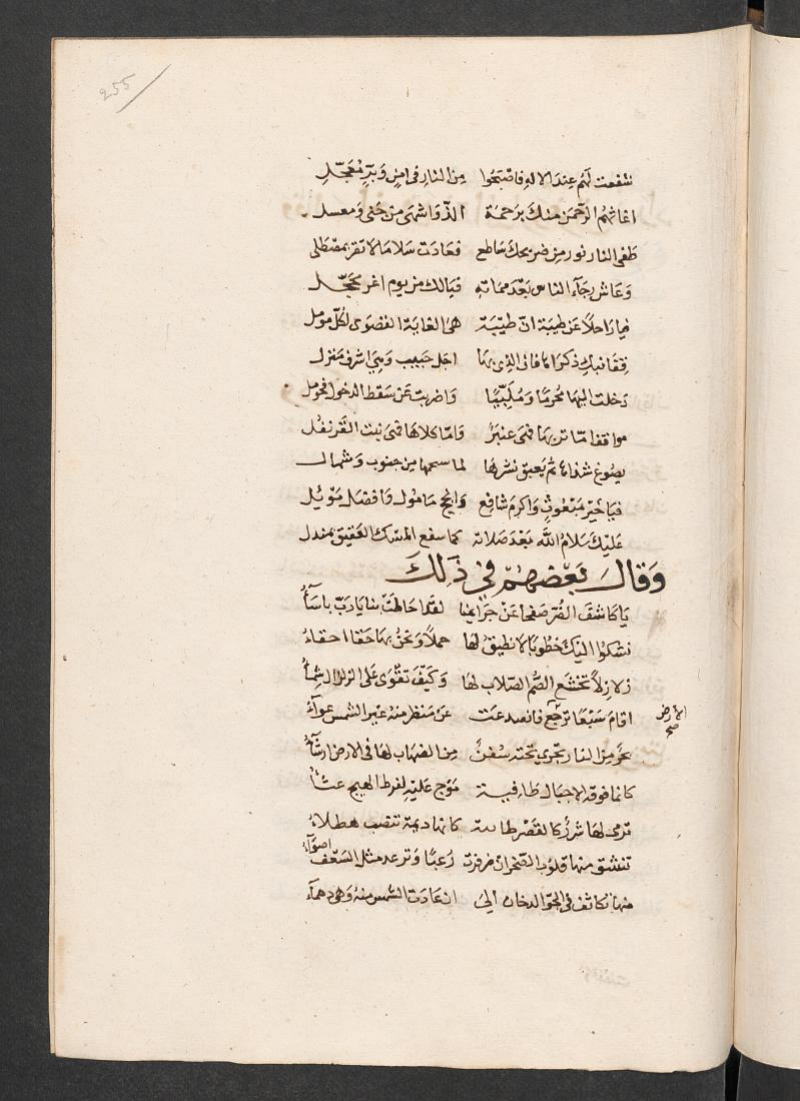 255
شفعت لهم عند الاله فاصبحوا من النار في امن وبرّ معجّل
اغاثهم الرحمن منك برحمة الذ واشهى من جنى ومعسل
طفى النار نور من ضريحك ساطع فعادت سلاما لا تضر بمصطلى
وعاش رجاء الناس بعد مماته فيالك من يوم اغر محجّل
فيا راحلا عن طيبة ان طيبة هي الغاية القصوى لكل مومل
قفا نبك ذكراها فان الذي بها اجل حبيب وهي اشرف منزل
دخلت اليها محرما وملبيا واضربت عن سقط الدخول فحومل
مواقف اما تربها فهي عنبر واما كلاها فهي نبت القرنفل
يضوع شذاها ثم يعبق نشرها لما نسجتها من جنوب وشمال
فيا خير مبعوث واكرم شافع وانجح مامول وافضل موئل
عليك سلام الله بعد صلاته كما شفع المسك العتيق بمندل
وقال بعضهم في ذلك
يا كاشف الضر صفحا عن جرائمنا لقد احاطت بنا يا رب باساء
نشكوا اليك خطوبا لا نطيق لها حملا ونحن بها حقا احقاء
زلازلا تخشع الصم الصلاب لها وكيف تقوى على الزلزال شماء
اقام سبعا ترجّ فانصدعت عن منظر منه عين الشمس عواء
الارض صح
بحر من النار تجري تحته سفن من الهضاب لها في الارض ارساء
كانما فوقه الاجبال طافية موج عليه لفرط الهيج عثاء
ترمى لها شرر كالقصر طائشة كانها ديمة تنصب هطلاء
تنشق منها قلوب الصخر ان زفرت رعبا وترعد مثل السعف اضواء
منها تكاثف في الجو الدخان الى ان عادت الشمس منه وهي دهماء